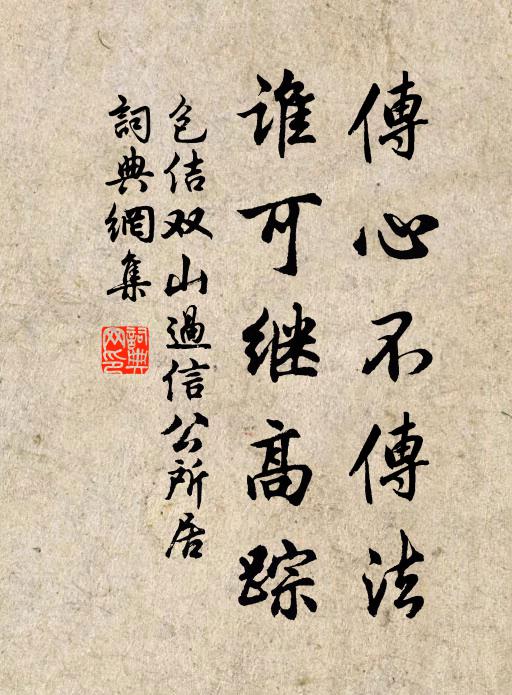 傳心不傳法
谁可继高踪
包佶双山過信公所居
詞典網集
詞典
网印